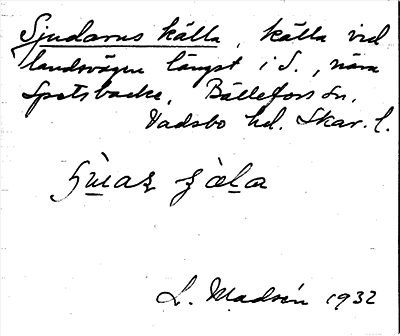 Sjudarns källa, källa vid
landsvägen längst i S., nära
Spetsbacke, Bällefors sn.
Vadsbo hd. Skar. l.
L. Modsén 1932